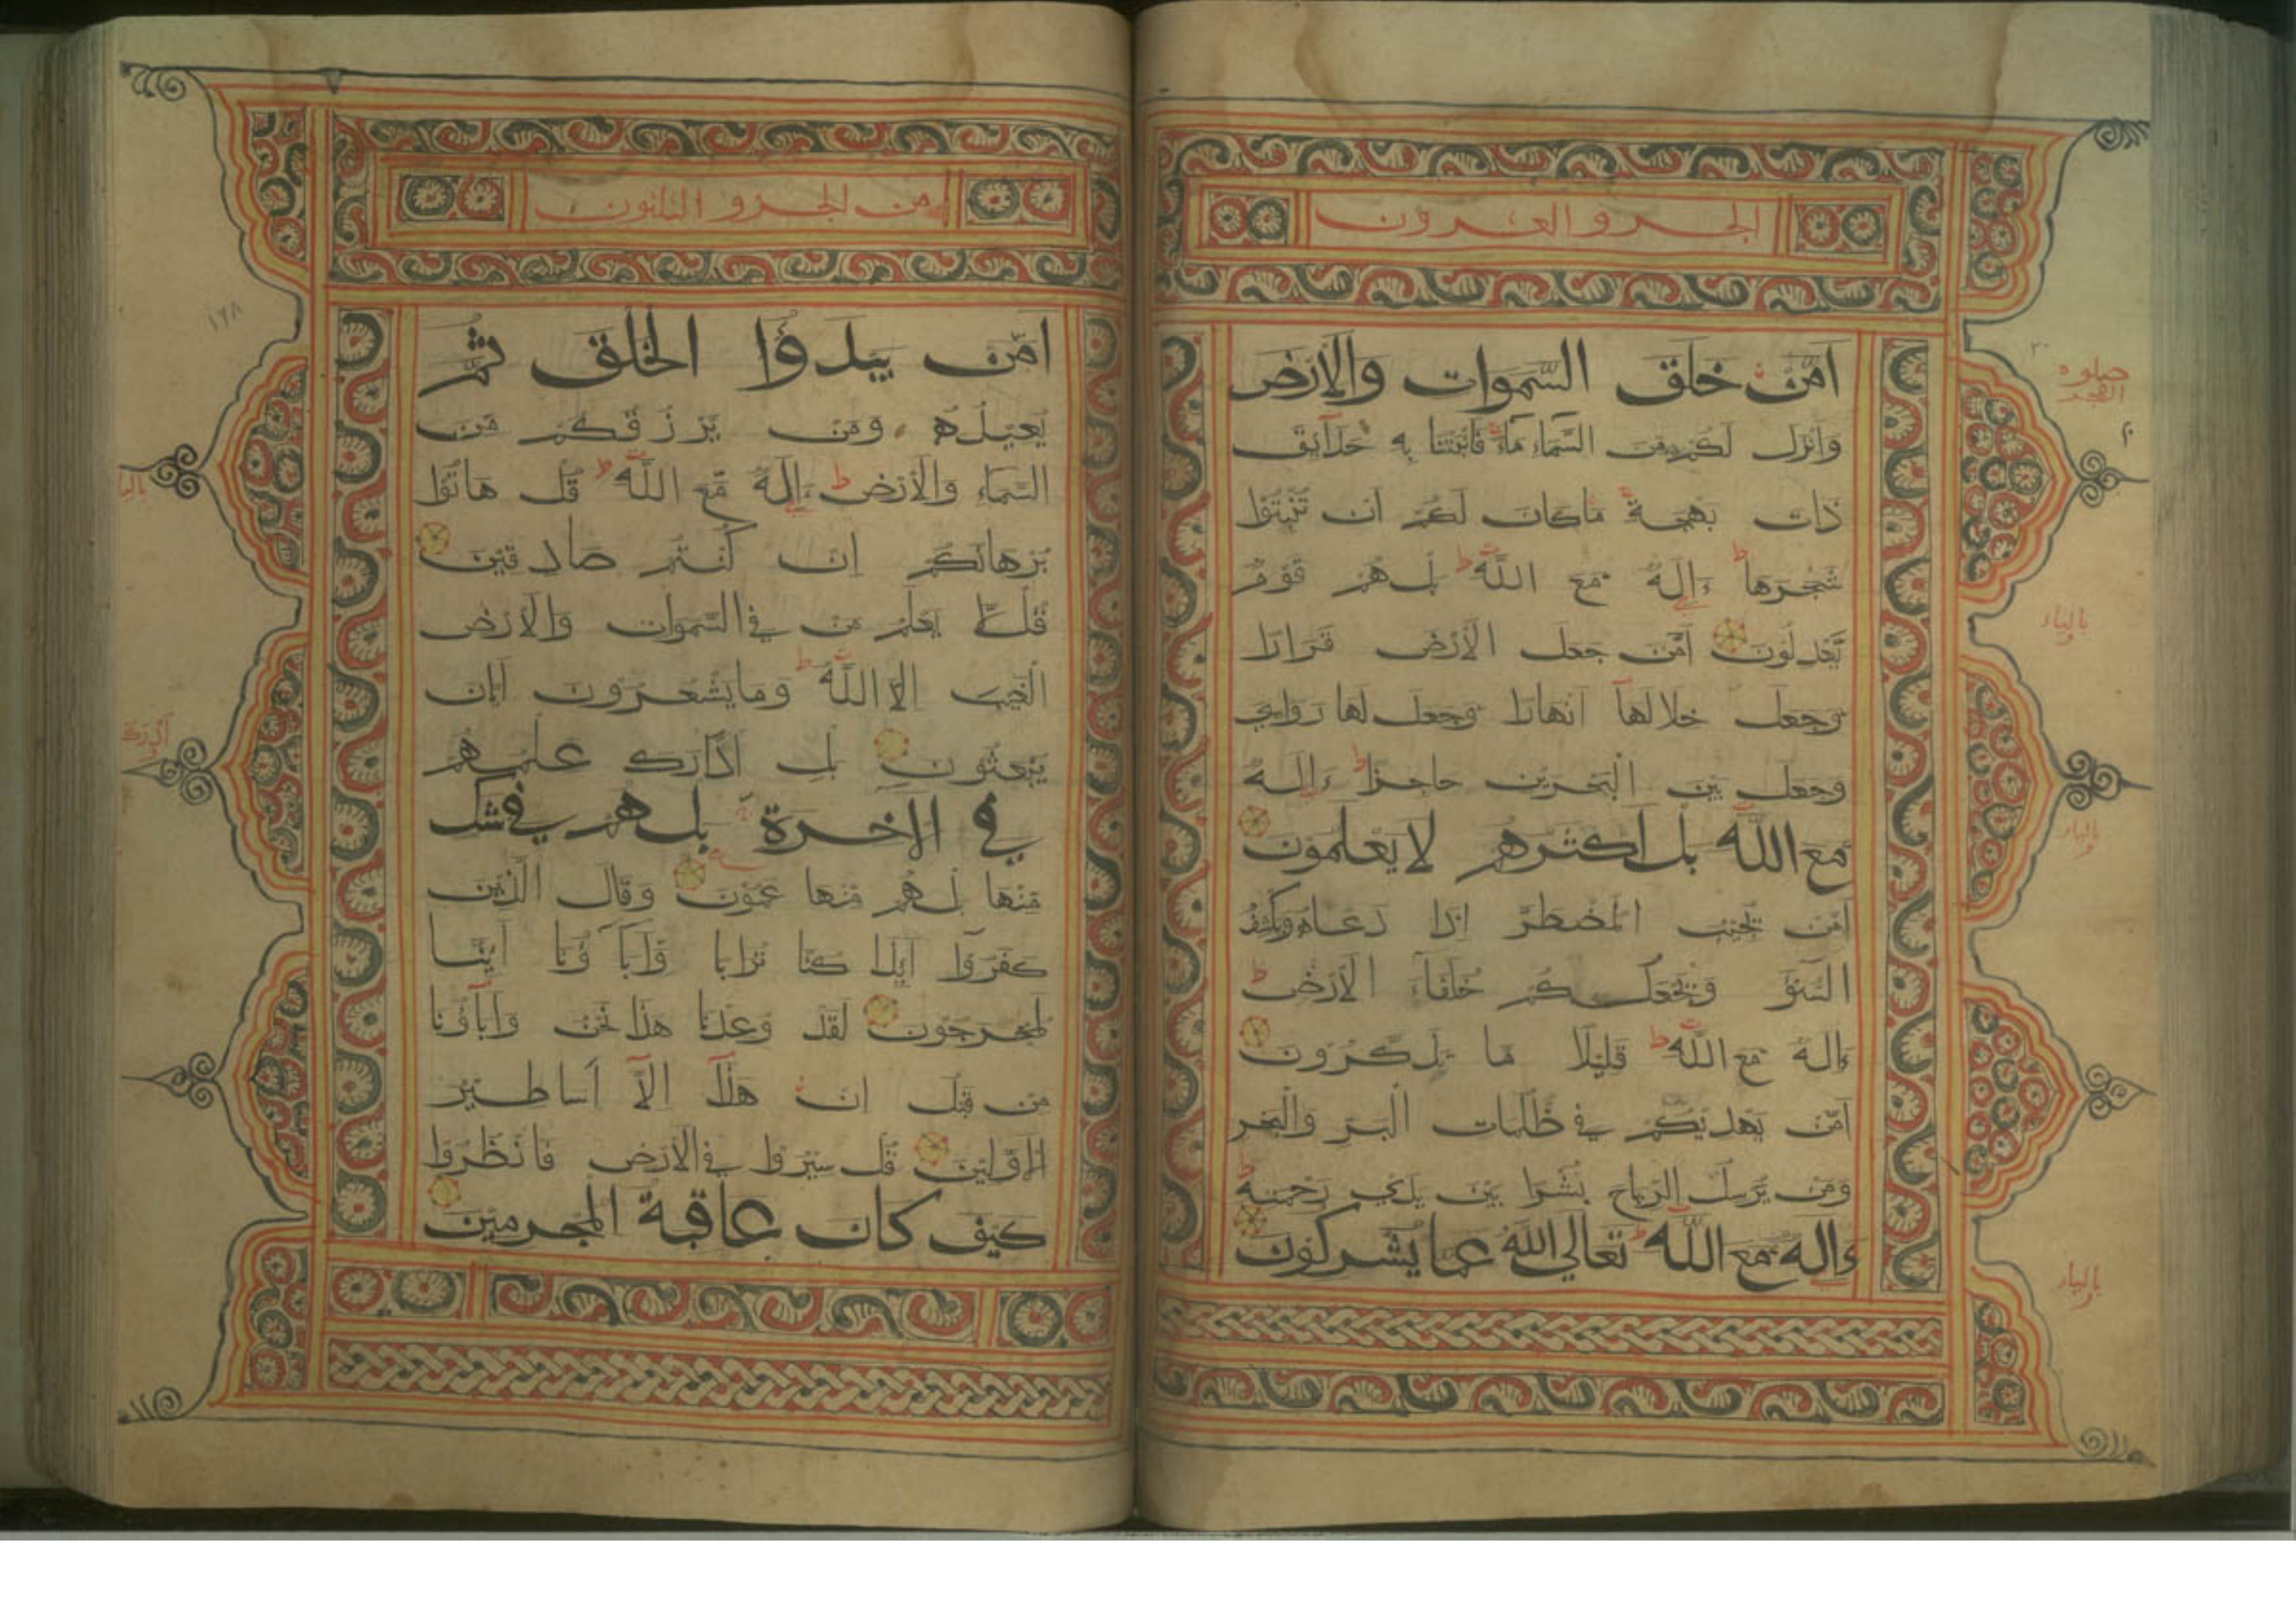 الجزو العشرون
امّن خلق السّموات والارض
وانزل لكم من السّماء ماء فانبتنا به حدآئق
ذات بهجة ما كان لكم ان تنبتوا
شجرها ط ءاله مع الله ط بل هم قوم
يعدلون امّن جعل الارض قرارا
وجعل خلالها انهارا وجعل لها رواسي
وجعل بين البحرين حاجزا ط ءاله
مع الله بل اكثرهم لا يعلمون
امّن يجيب المضطرّ اذا دعاه ويكشف
السّوٓء ويجعلكم خلفاء الارض ط
ءاله مع الله ط قليلا ما يذكّرون
امّن يهديكم في ظلمات البرّ والبحر
ومن يّرسل الرياح بشرا بين يدي رحمته ط
ءاله مع الله ط تعالى الله عما يشركون
صلوة
الفجر
بالياء
بالياء
بالياء
من الجزو الثلثون
امّن يبدؤا الخلق ثمّ
يعيده ومن يّرزقكم مّن
السّماء والارض ط ءاله مّع الله ط قل هاتوا
برهانكم ان كنتم صادقين
قل لّا يعلم من في السّموات والارض
الغيب الا الله ط وما يشعرون ايّان
يبعثون بل ادّارك علمهم
في الاخرة بل هم في شك
مّنها بل هم مّنها عمون وقال الّذين
كفروٓا ائذا كنّا ترابا وّاباؤنا ائنّا
لمخرجون لقد وعدنا هذا نحن وابآؤنا
من قبل ان هذآ الّآ اساطير
الاوّلين قل سيروا في الارض فانظروا
كيف كان عاقبة المجرمين
١٦٨
بالياء